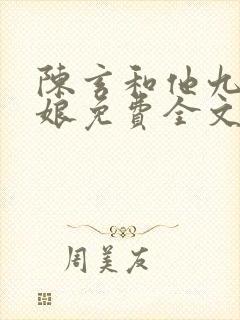 陳言和他九
娘免費全文
周美友